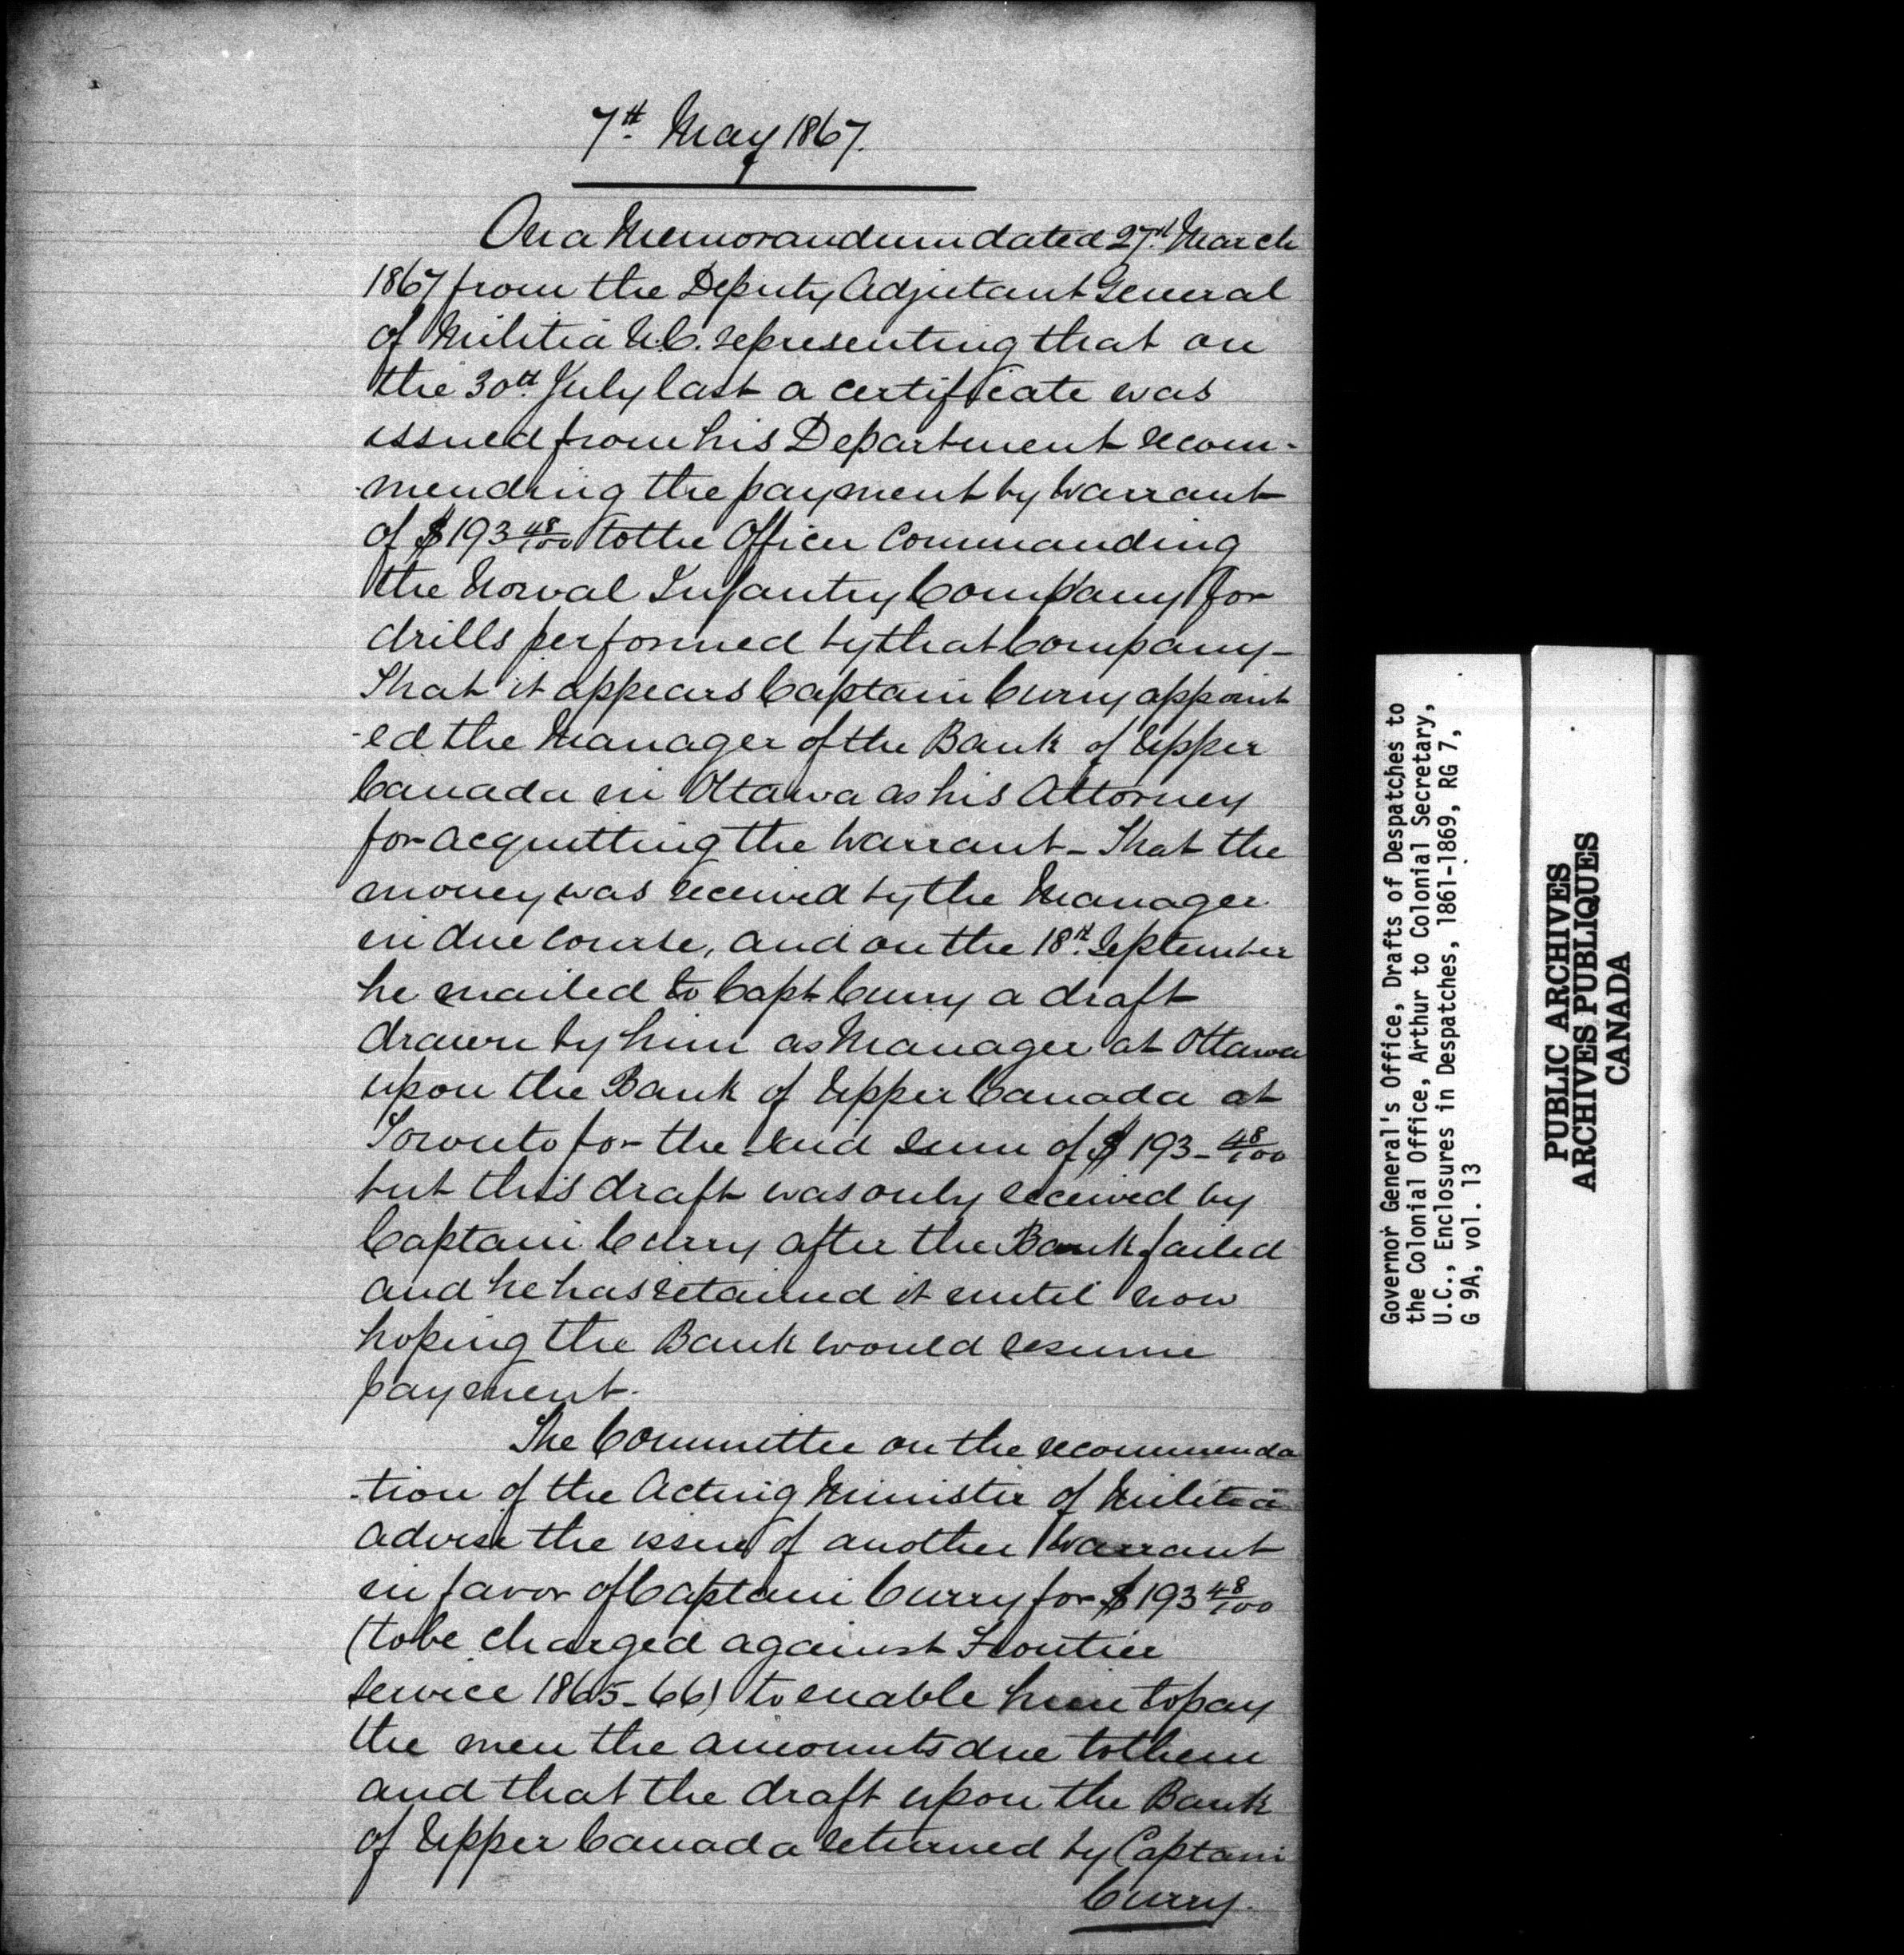 7th May 1867.
On a Memorandum dated 27th March
1867 from the Deputy Adjutant General
of Militia U.C. representing that on
the 30th July last a certificate was
issued from his Department recom-
-mending the payment by Warrant
of $193 48/100 to the Officer Commanding
the Norval Infantry Company for
drills performed by that Company –
That it appears Captain Curry appoint
-ed the Manager of the Bank of Upper
Canada in Ottawa as his Attorney
for acquitting the Warrant – That the
money was received by the Manager
in due course, and on the 18th September
he mailed to Capt Curry a draft
drawn by him as Manager at Ottawa
upon the Bank of Upper Canada at
Toronto for the said sum of $193 – 48/100
but this draft was only received by
Captain Curry after the Bank failed
and he has retained it until now
hoping the Bank would resume
payment.
The Committee on the recommenda
-tion of the Acting Minister of Militia
advise the issue of another Warrant
in favor of Captain Curry for $193 48/100
(to be charged against Frontier
Service 1865-66) to enable him to pay
the men the amounts due to them
and that the draft upon the Bank
of Upper Canada returned by Captain
Curry.
Governor General's Office, Drafts of Despatches to
the Colonial Office, Arthur to Colonial Secretary,
U.C., Enclosures in Despatches, 1861-1869, RG 7,
G 9A, vol. 13
PUBLIC ARCHIVES
ARCHIVES PUBLIQUES
CANADA